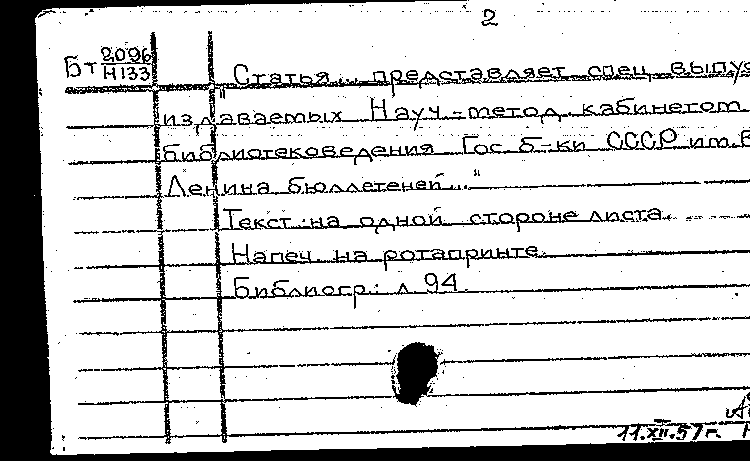 2
Бт 2096
Н133
"Статья... представляет спец. выпуск
издаваемых Науч.-метод. кабинетом
библиотековедения Гос. б-ки СССР им. В
Ленина бюллетеней..."
Текст: на одной стороне листа.
Напеч. на ротапринте.
Библиогр.: л 94.
11.XII.57г.